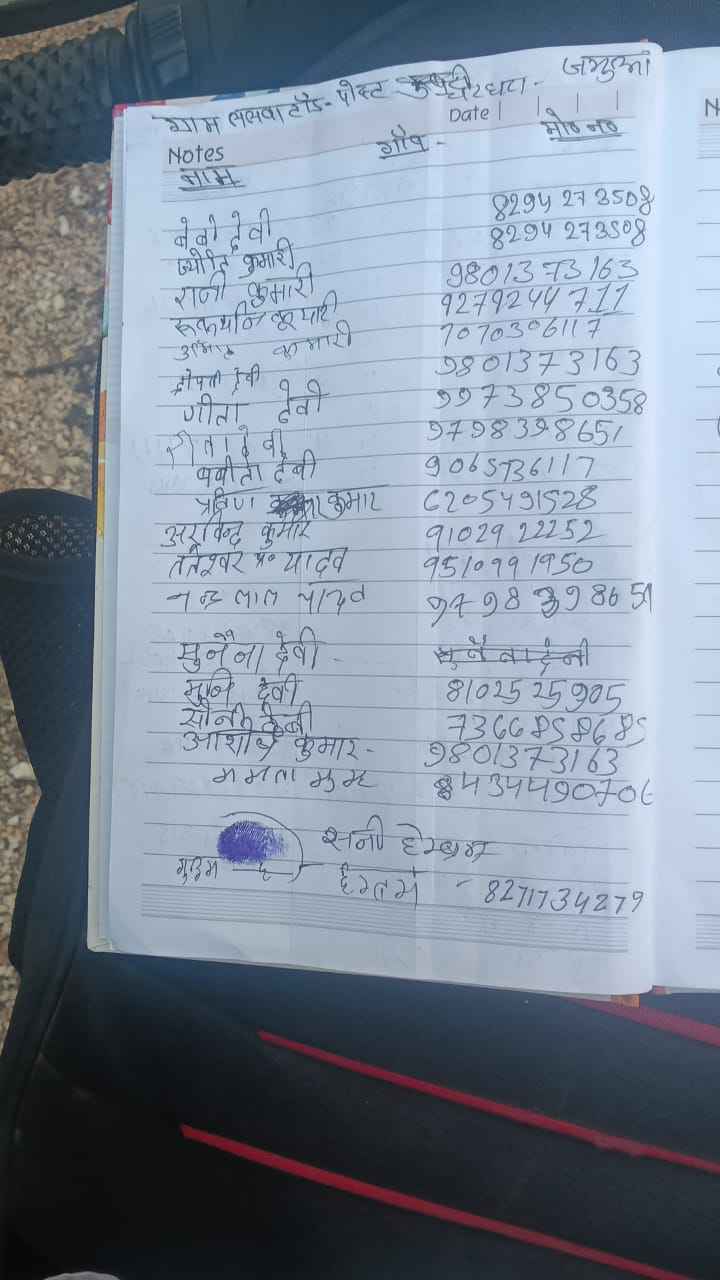 ग्राम ललवाटॉड - पोस्ट घोरधरा - जमुआ
Date
Notes
नाम गाँव - मो० न०
बेबी देवी 8294273508
ज्योति कुमारी 8294273508
रानी कुमारी 9801373163
रूकमनि कुमारी 9279244711
कुमारी 7070306117
द्रोपती देवी 9801373163
गीता देवी 9973850358
रीता देवी 9798398651
बबीता देवी 9065736117
प्रविण कुमार 6205491528
अरविन्द कुमार 9102922252
ततेश्वर प्र० यादव 9510991950
नन्द लाल यादव 9798398651
सुनैना देवी - सुनैना देवी
मुनि देवी 8102525905
सोनी देवी 7366858685
आशीष कुमार - 9801373163
ममता 8434490706
सनी हेम्ब्रम
- 8271734279
N